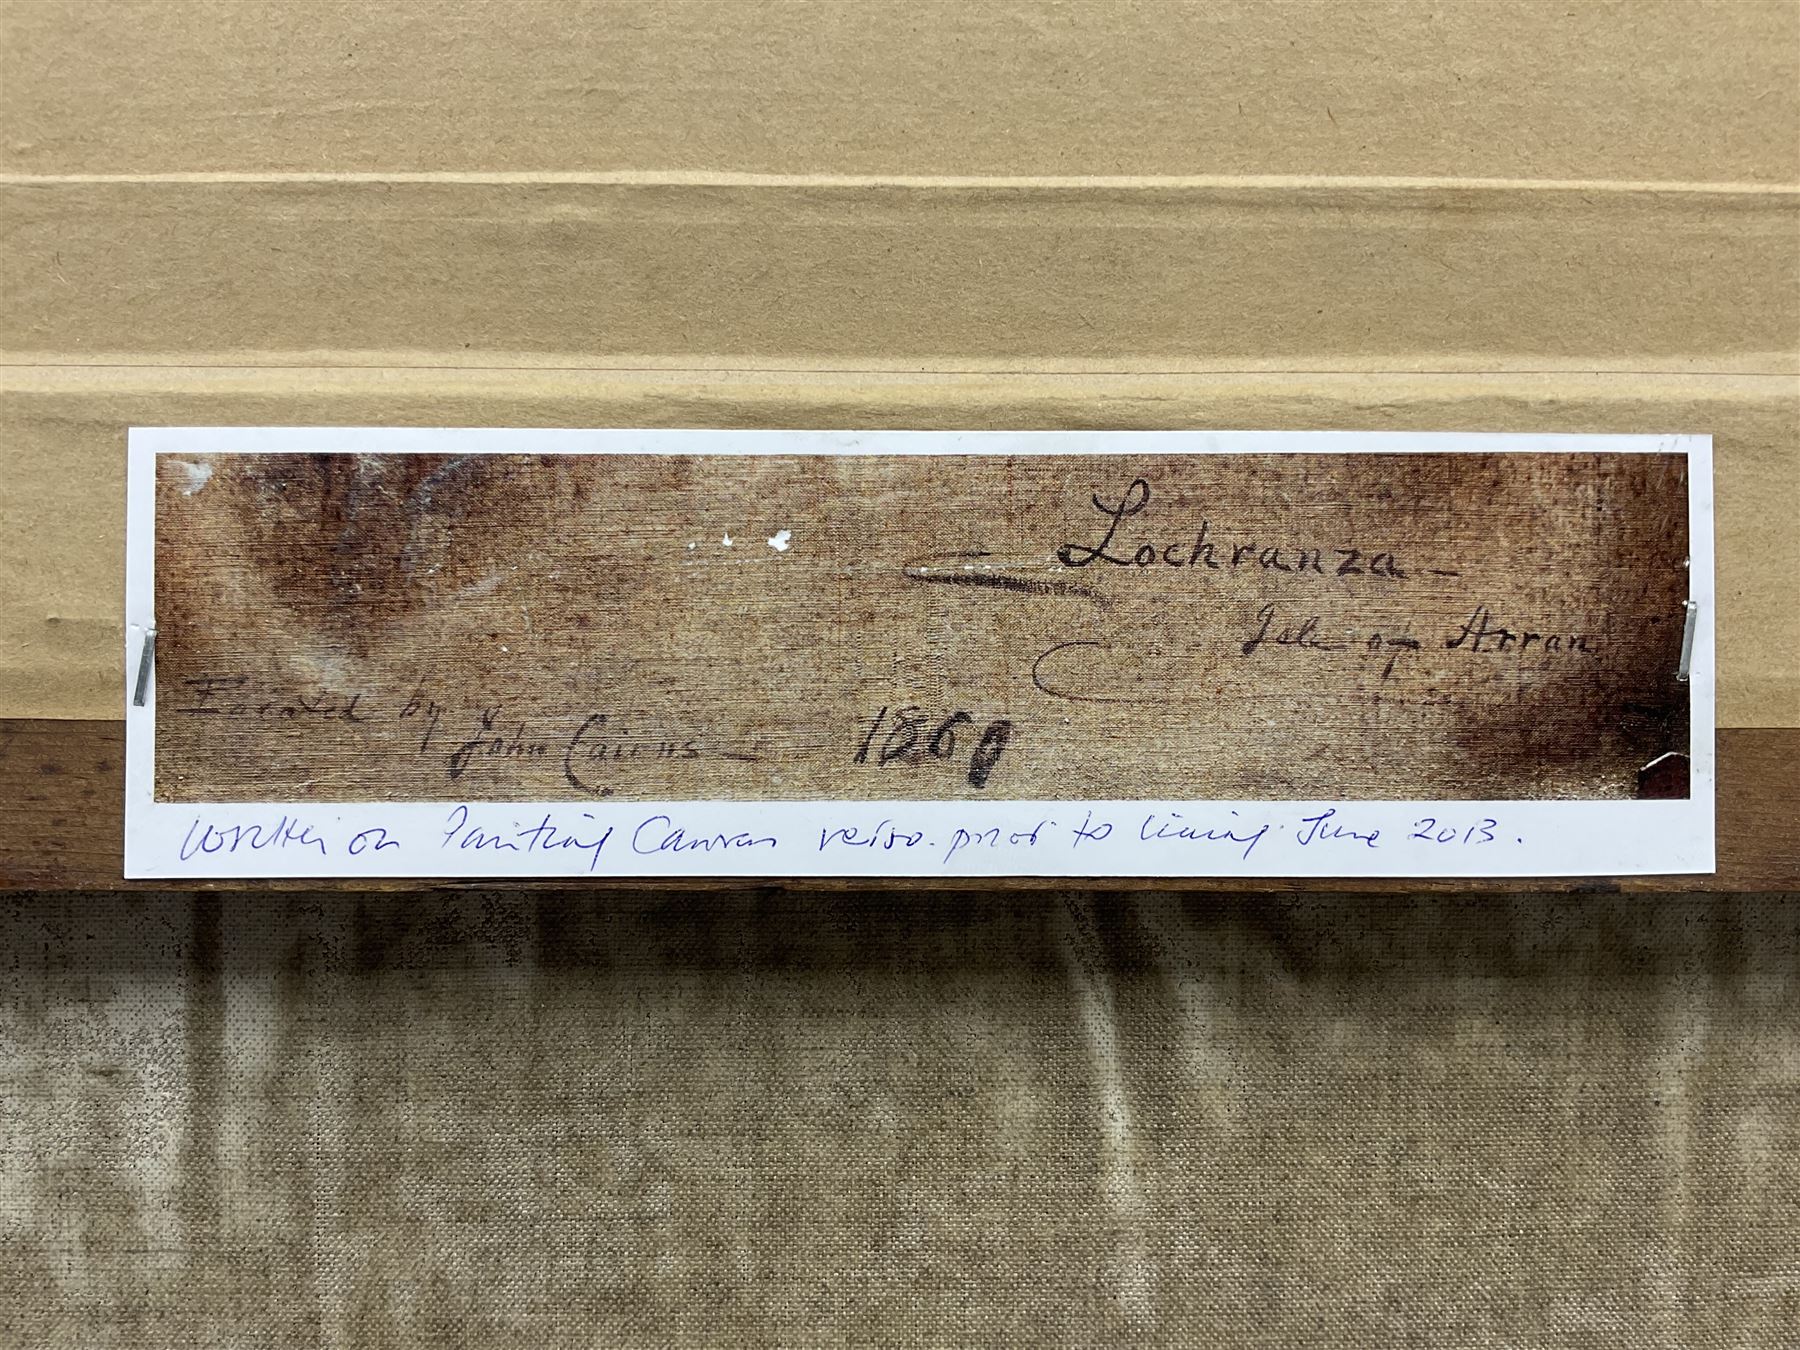 Lochranza -
Isle of Arran
Painted by
John Cairns - 1860
Written on Painting Canvas verso. prior to lining June 2013.